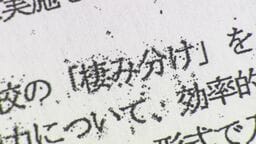 実施
校の「棲み分け」を
力について、効率的
形式で